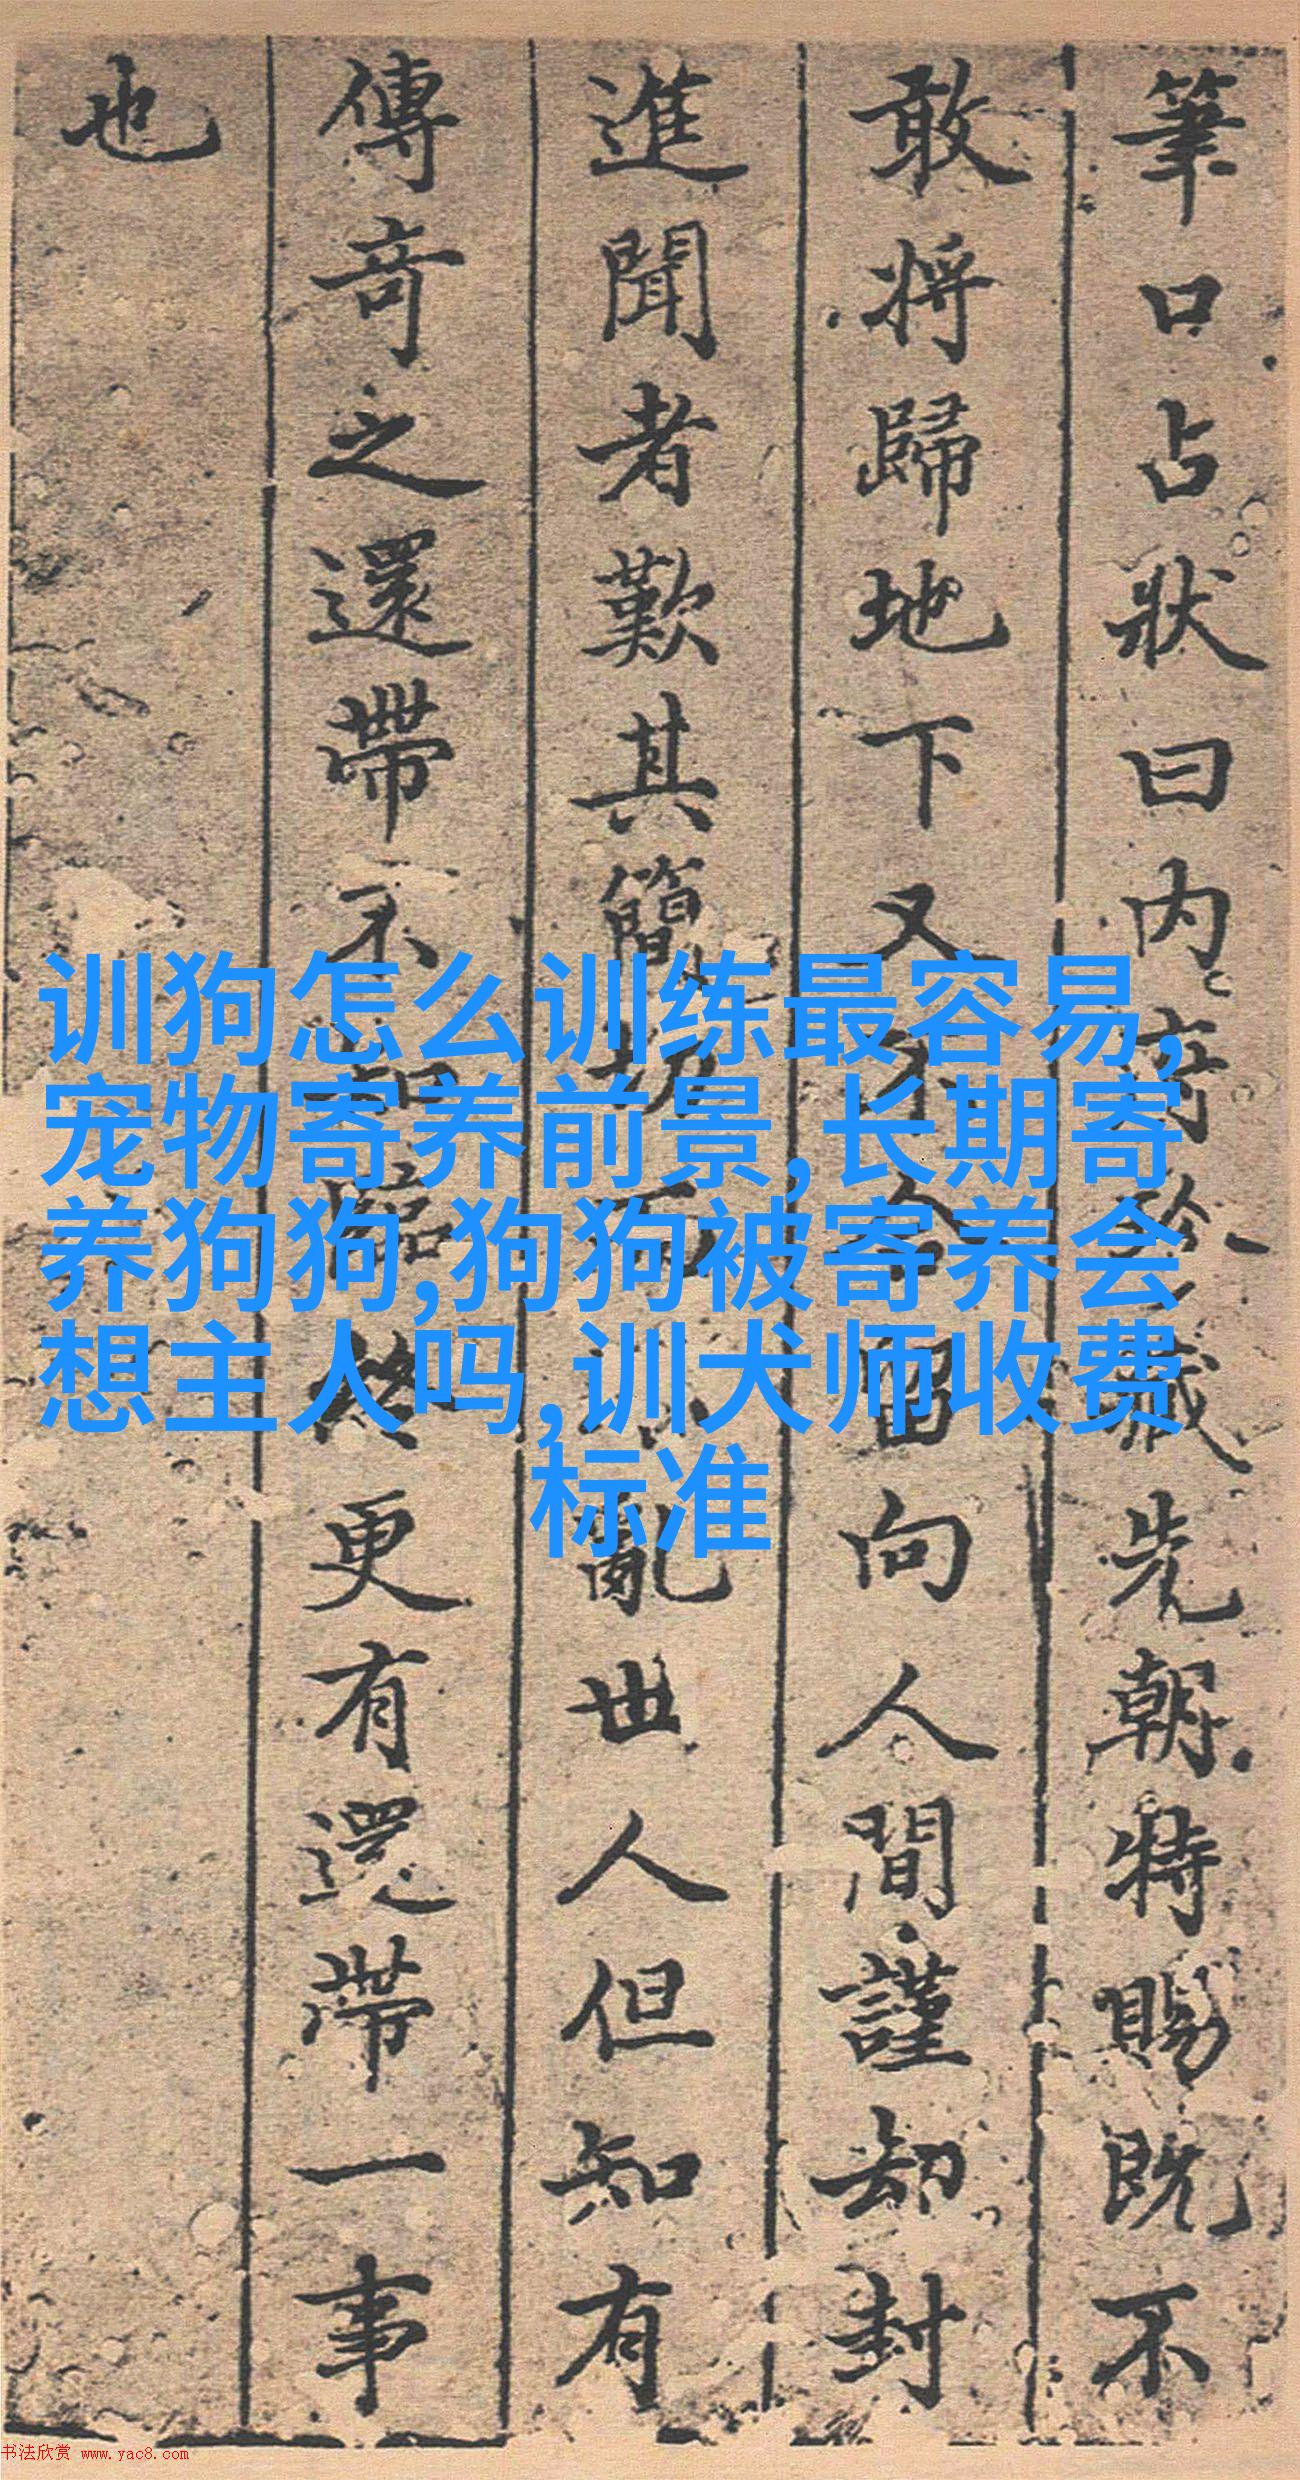 筆口占狀曰內府珍藏先朝特賜既不
敢將歸地下又不合留向人間謹却封
進聞者歎其簡切不亂世人但知有
傳奇之還帶不知臨終更有還帶一事
也
训狗怎么训练最容易,
宠物寄养前景,长期寄
养狗狗,狗狗被寄养会
想主人吗,训犬师收费
标准
书法欣赏 www.yac8.com